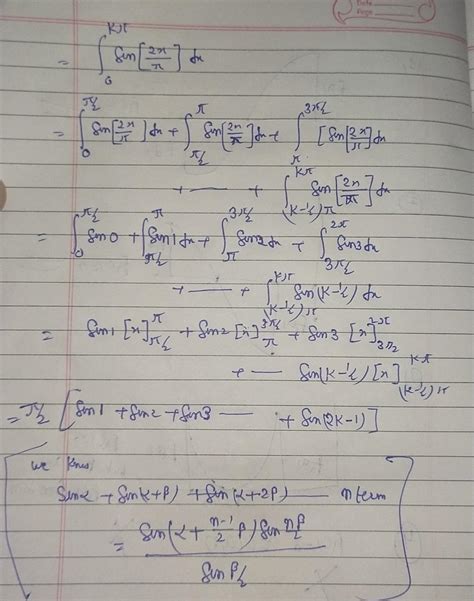 Date
Page
= ∫_0^{Kπ} Sin[2x/π] dx
= ∫_0^{π/2} Sin[2x/π] dx + ∫_{π/2}^{π} Sin[2x/π] dx + ∫_π^{3π/2} [Sin[2x/π] dx
+ —— + ∫_{(K-½)π}^{Kπ} Sin[2x/π] dx
= ∫_0^{π/2} Sin0 + ∫_{π/2}^{π} Sin1 dx + ∫_π^{3π/2} Sin2 dx + ∫_{3π/2}^{2π} Sin3 dx
+ —— + ∫_{(K-½)π}^{Kπ} Sin(K-½) dx
= Sin1 [x]_{π/2}^{π} + Sin2 [x]_π^{3π/2} + Sin3 [x]_{3π/2}^{2π}
+ —— Sin(K-½) [x]_{(K-½)π}^{Kπ}
= π/2 [Sin1 + Sin2 + Sin3 —— + Sin(2K-1)]
we know
Sinα + Sin(α+β) + Sin(α+2β) —— n term
= Sin(α + (n-1)/2 β) Sin nβ/2
Sin β/2